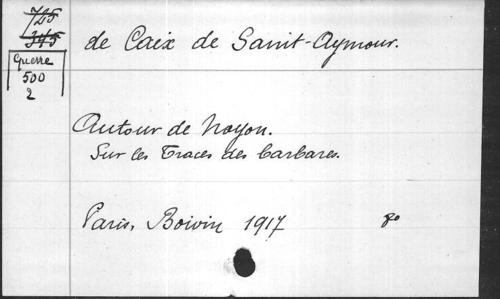 725
345
Guerre
500
2
de Caix de Saint-Aymour.
Autour de Noyon.
Sur les Traces des barbares.
Paris, Boivin 1917 8o